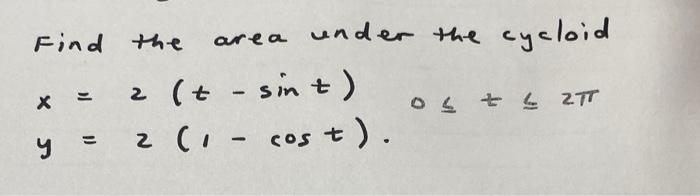 Find the area under the cycloid
x = 2 (t - sin t) 0 ≤ t ≤ 2π
y = 2 (1 - cos t).